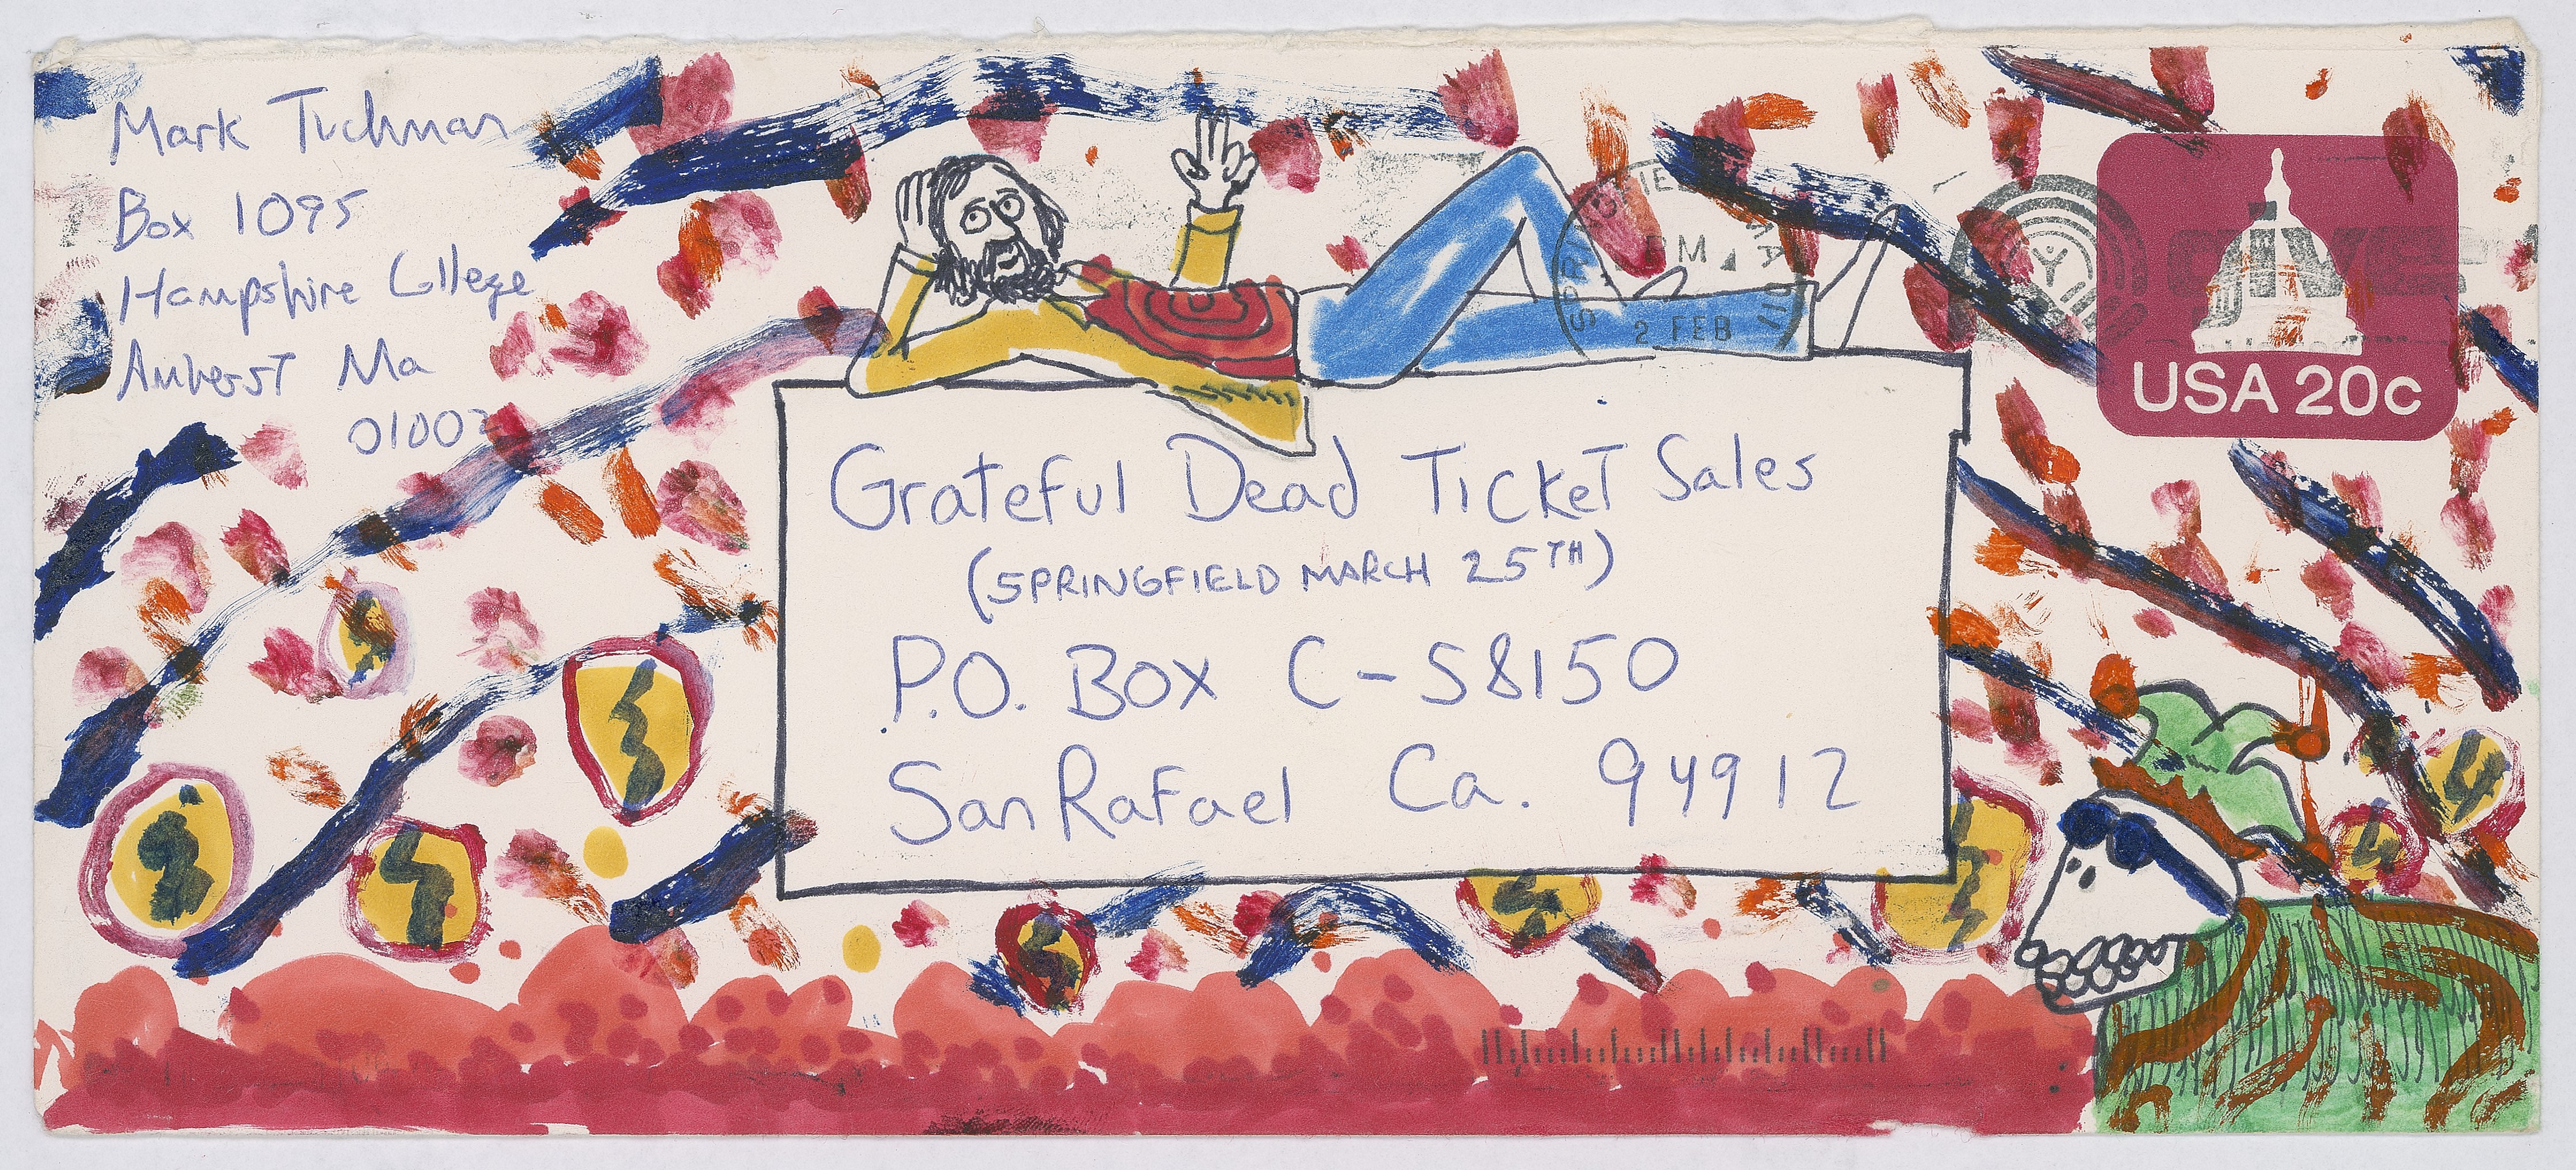 Mark Tuchman
Box 1095
Hampshire College
Amherst Ma
01002
2 FEB
PM
USA 20c
Grateful Dead Ticket Sales
(SPRINGFIELD MARCH 25TH)
P.O. Box C-S8150
San Rafael Ca. 94912